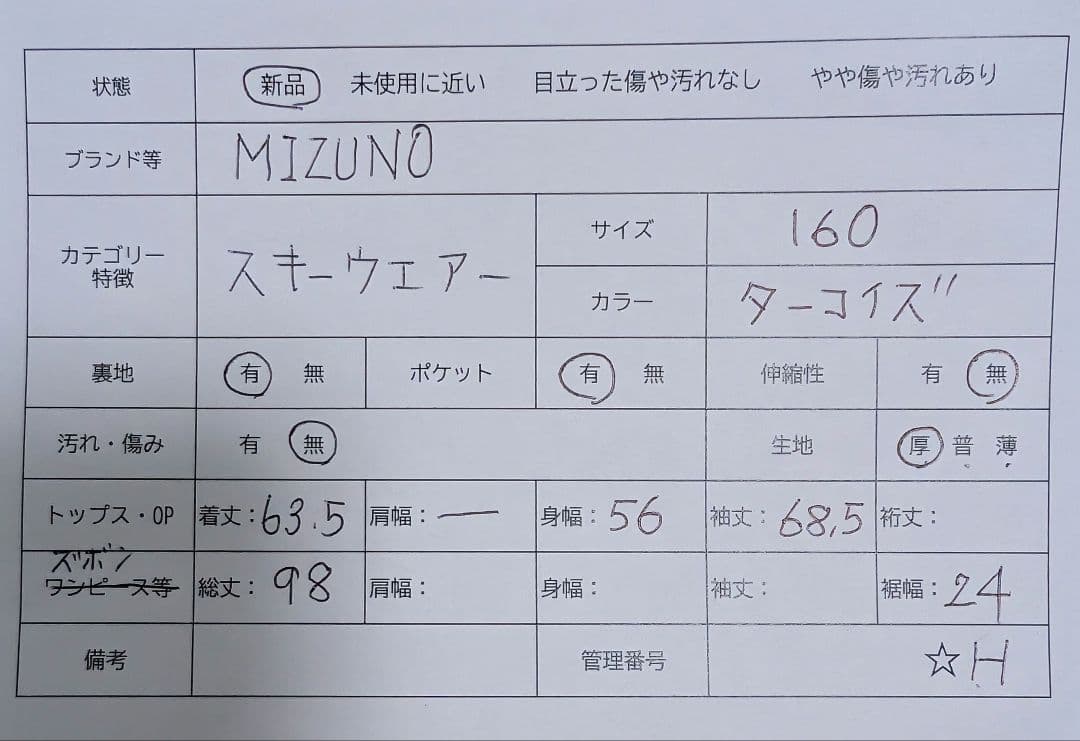 状態 新品 未使用に近い 目立った傷や汚れなし やや傷や汚れあり
ブランド等 MIZUNO
カテゴリー
特徴
スキーウェアー
サイズ 160
カラー ターコイズ
裏地 有 無 ポケット 有 無 伸縮性 有 無
汚れ・傷み 有 無 生地 厚 普 薄
トップス・OP 着丈:63.5 肩幅:— 身幅:56 袖丈:68.5 裄丈:
ズボン
ワンピース等 総丈:98 肩幅: 身幅: 袖丈: 裾幅:24
備考 管理番号 ☆H